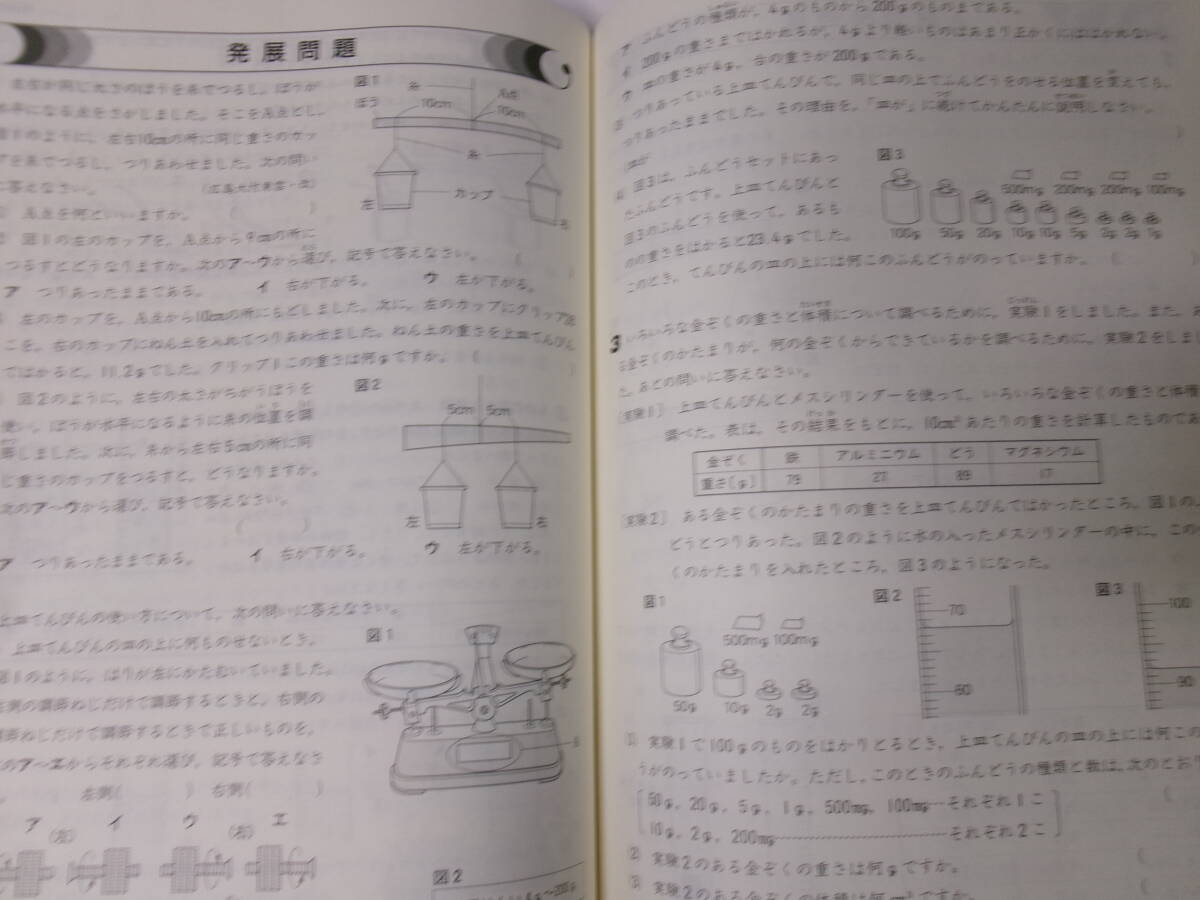 発展問題
左右が同じ太さのぼうを糸でつるし，ぼうが
水平になる点をさがしました。そこをA点とし，
図1のように，左右10cmの所に同じ重さのカッ
プを糸でつるし，つりあわせました。次の問い
に答えなさい。
A点を何といいますか。（　）
図1の左のカップを，A点から9cmの所に
つるすとどうなりますか。次のア〜ウから選び，記号で答えなさい。（　）
ア　つりあったままである。　イ　右が下がる。　ウ　左が下がる。
左のカップを，A点から10cmの所にもどしました。次に，左のカップにクリップ
こを，右のカップにねん土を入れてつりあわせました。ねん土の重さを上皿てんびん
ではかると，11.2gでした。クリップ1この重さは何gですか。（　）
図2のように，左右の太さがちがうぼうを
使い，ぼうが水平になるように糸の位置を調
節しました。次に，糸から左右5cmの所に同
じ重さのカップをつるすと，どうなりますか。
次のア〜ウから選び，記号で答えなさい。
（　）
ア　つりあったままである。　イ　右が下がる。　ウ　左が下がる。
図1
糸
A点
ぼう
10cm
10cm
糸
カップ
左
右
図2
5cm
5cm
左
右
上皿てんびんの使い方について，次の問いに答えなさい。
上皿てんびんの皿の上に何ものせないとき，
図1のように，はりが左にかたむいていました。
左側の調節ねじだけで調節するときと，右側の
調節ねじだけで調節するときで正しいものを，
のア〜エからそれぞれ選び，記号で答えなさ
左側（　）右側（　）
ア　イ　ウ　エ
（左）（右）
図1
図2
ア　ふんどうの種類が，4gのものから200gのものまである。
イ　200gの重さまではかれるが，4gより軽いものはあまり正かくにははかれない。
ウ　皿の重さが4g，台の重さが200gである。
つりあっている上皿てんびんで，同じ皿の上でふんどうをのせる位置を変えても，
つりあったままでした。その理由を，「皿が」に続けてかんたんに説明しなさい。
（皿が　）
図3は，ふんどうセットにあっ
たふんどうです。上皿てんびんと
図3のふんどうを使って，あるも
のの重さをはかると23.4gでした。
このとき，てんびんの皿の上には何このふんどうがのっていますか。（
図3
500mg　200mg　200mg　100mg
100g　50g　20g　10g　10g　5g　2g　2g　1g
3　いろいろな金ぞくの重さと体積について調べるために，実験1をしました。また，あ
る金ぞくのかたまりが，何の金ぞくからできているかを調べるために，実験2をしまし
た。あとの問いに答えなさい。
［実験1］　上皿てんびんとメスシリンダーを使って，いろいろな金ぞくの重さと体積
調べた。表は，その結果をもとに，10cm³あたりの重さを計算したものであ
金ぞく　鉄　アルミニウム　どう　マグネシウム
重さ〔g〕　79　27　89　17
［実験2］　ある金ぞくのかたまりの重さを上皿てんびんではかったところ，図1の
どうとつりあった。図2のように水の入ったメスシリンダーの中に，この
くのかたまりを入れたところ，図3のようになった。
図1
500mg　100mg
50g　10g　2g　2g
図2
70
60
図3
100
90
(1)　実験1で100gのものをはかりとるとき，上皿てんびんの皿の上には何この
うがのっていましたか。ただし，このときのふんどうの種類と数は，次のとお
50g，20g，5g，1g，500mg，100mg…それぞれ1こ
10g，2g，200mg…それぞれ2こ
(2)　実験2のある金ぞくの重さは何gですか。
(3)　実験2のある金ぞくの体積は何cm³ですか。